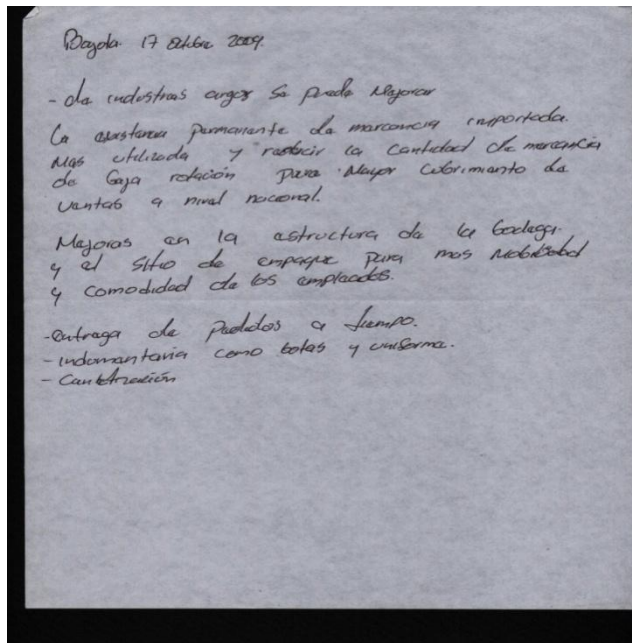 Bogota 17 Octubre 2009.
- de industrias argos se puede Mejorar
la existencia permanente de mercancia importada.
Mas utilizada y reducir la cantidad de mercancia
de baja rotación para Mayor cubrimiento de
ventas a nivel nacional.
Mejoras en la estructura de la bodega.
y el sitio de empaque para mas Mobilidad
y comodidad de los empleados.
- entrega de pedidos a tiempo.
- indumentaria como botas y uniforme.
-